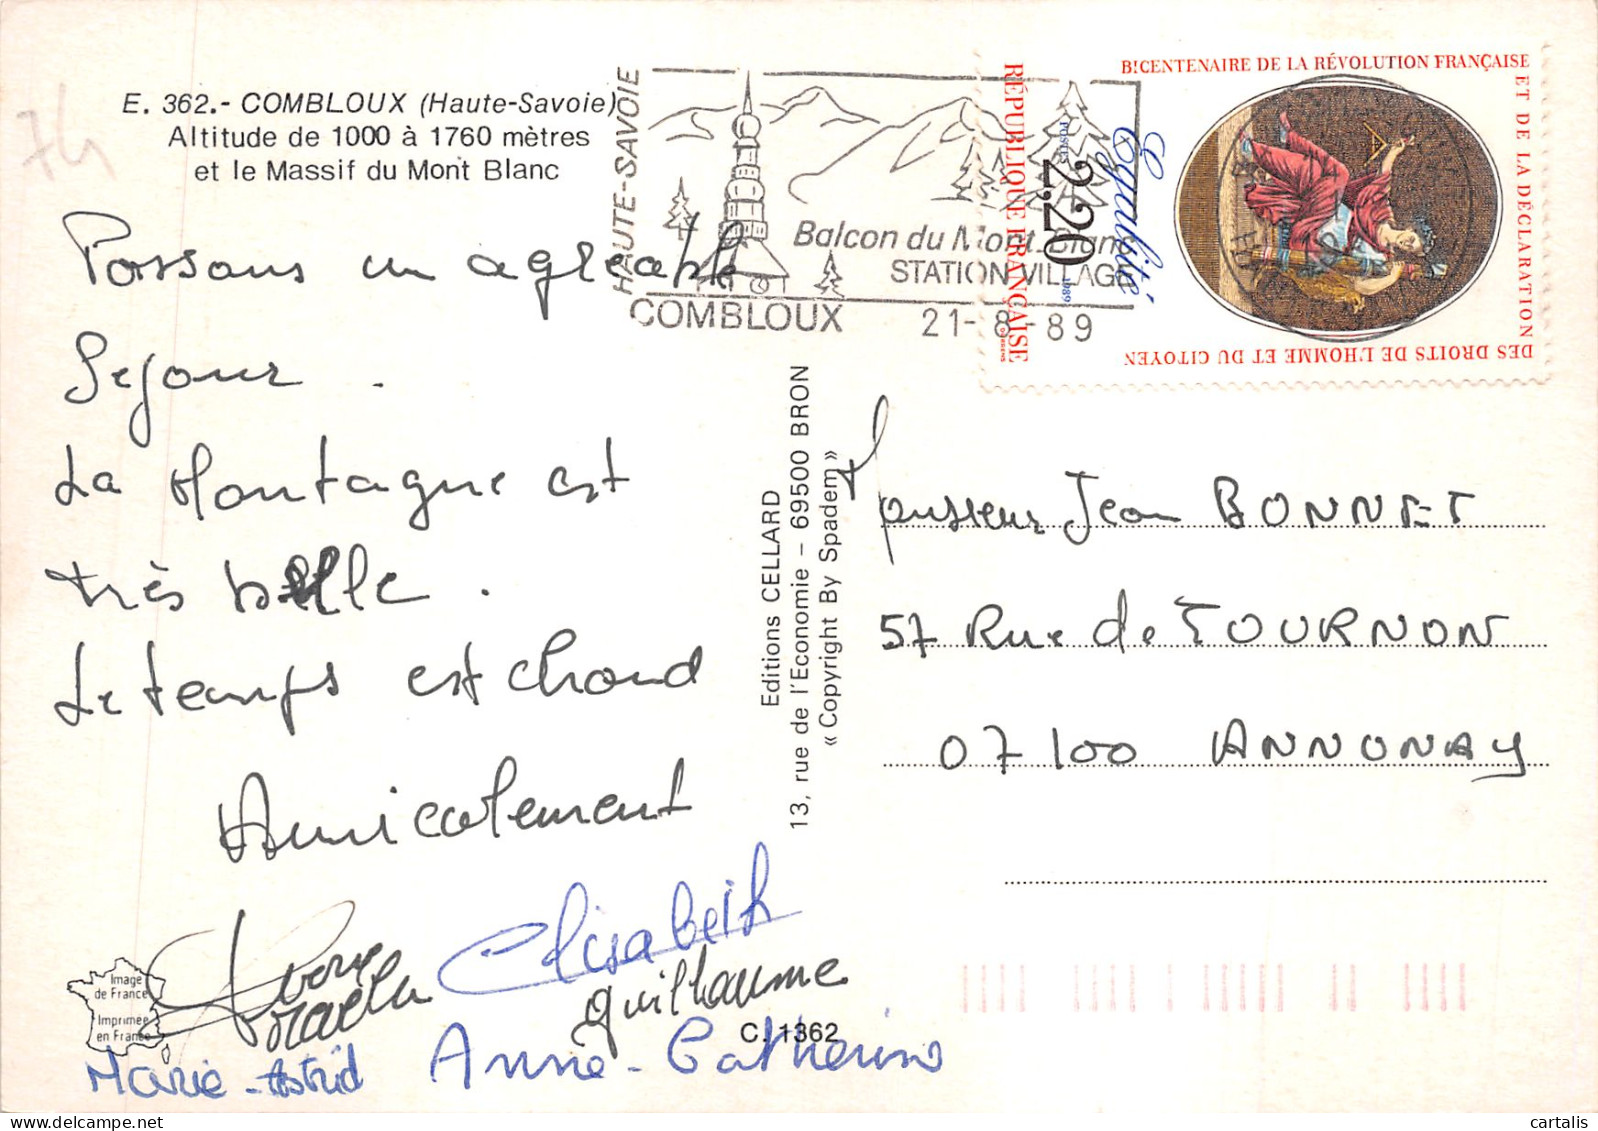 74
E. 362.- COMBLOUX (Haute-Savoie)
Altitude de 1000 à 1760 mètres
et le Massif du Mont Blanc
HAUTE-SAVOIE
Balcon du Mont-Blanc
STATION VILLAGE
COMBLOUX 21-8-89
RÉPUBLIQUE FRANÇAISE
POSTES 2,20 1989
Egalité
BICENTENAIRE DE LA RÉVOLUTION FRANÇAISE
ET DE LA DÉCLARATION
DES DROITS DE L'HOMME ET DU CITOYEN
Passons un agréable
Séjour.
La Montagne est
très belle.
Le temps est chaud
Amicalement
Elisabeth
Guillaume
Marie-Astrid Anne-Catherine
Editions CELLARD
13, rue de l'Economie - 69500 BRON
« Copyright By Spadem »
Monsieur Jean BONNET
57 Rue de TOURNON
07100 ANNONAY
Image
de France
Imprimée
en France
C. 1362
cartalis